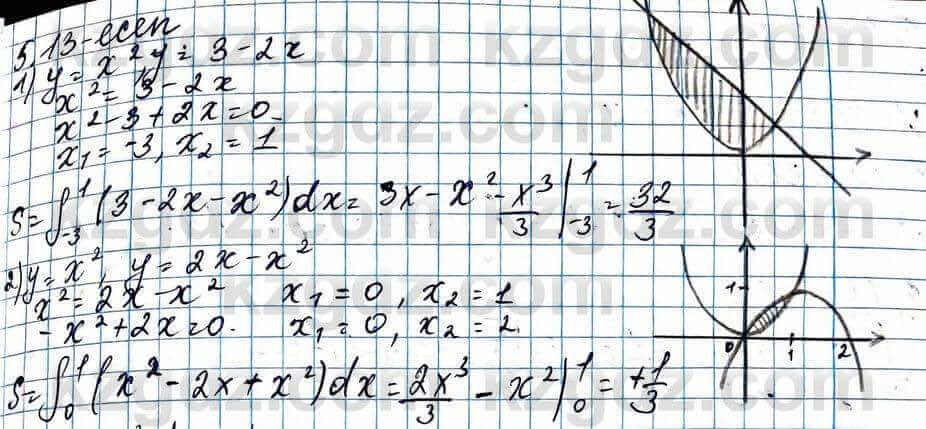 5.13-есеп
1) y = x² y = 3 - 2x
x² = 3 - 2x
x² - 3 + 2x = 0
x₁ = -3, x₂ = 1
S = ∫₋₃¹ (3 - 2x - x²)dx = 3x - x² - x³/3 |₋₃¹ = 32/3
2) y = x², y = 2x - x²
x² = 2x - x² x₁ = 0, x₂ = 1
-x² + 2x = 0. x₁ = 0, x₂ = 2.
S = ∫₀¹ (x² - 2x + x²)dx = 2x³/3 - x² |₀¹ = +1/3
1
0 1 2
kzgdz.com